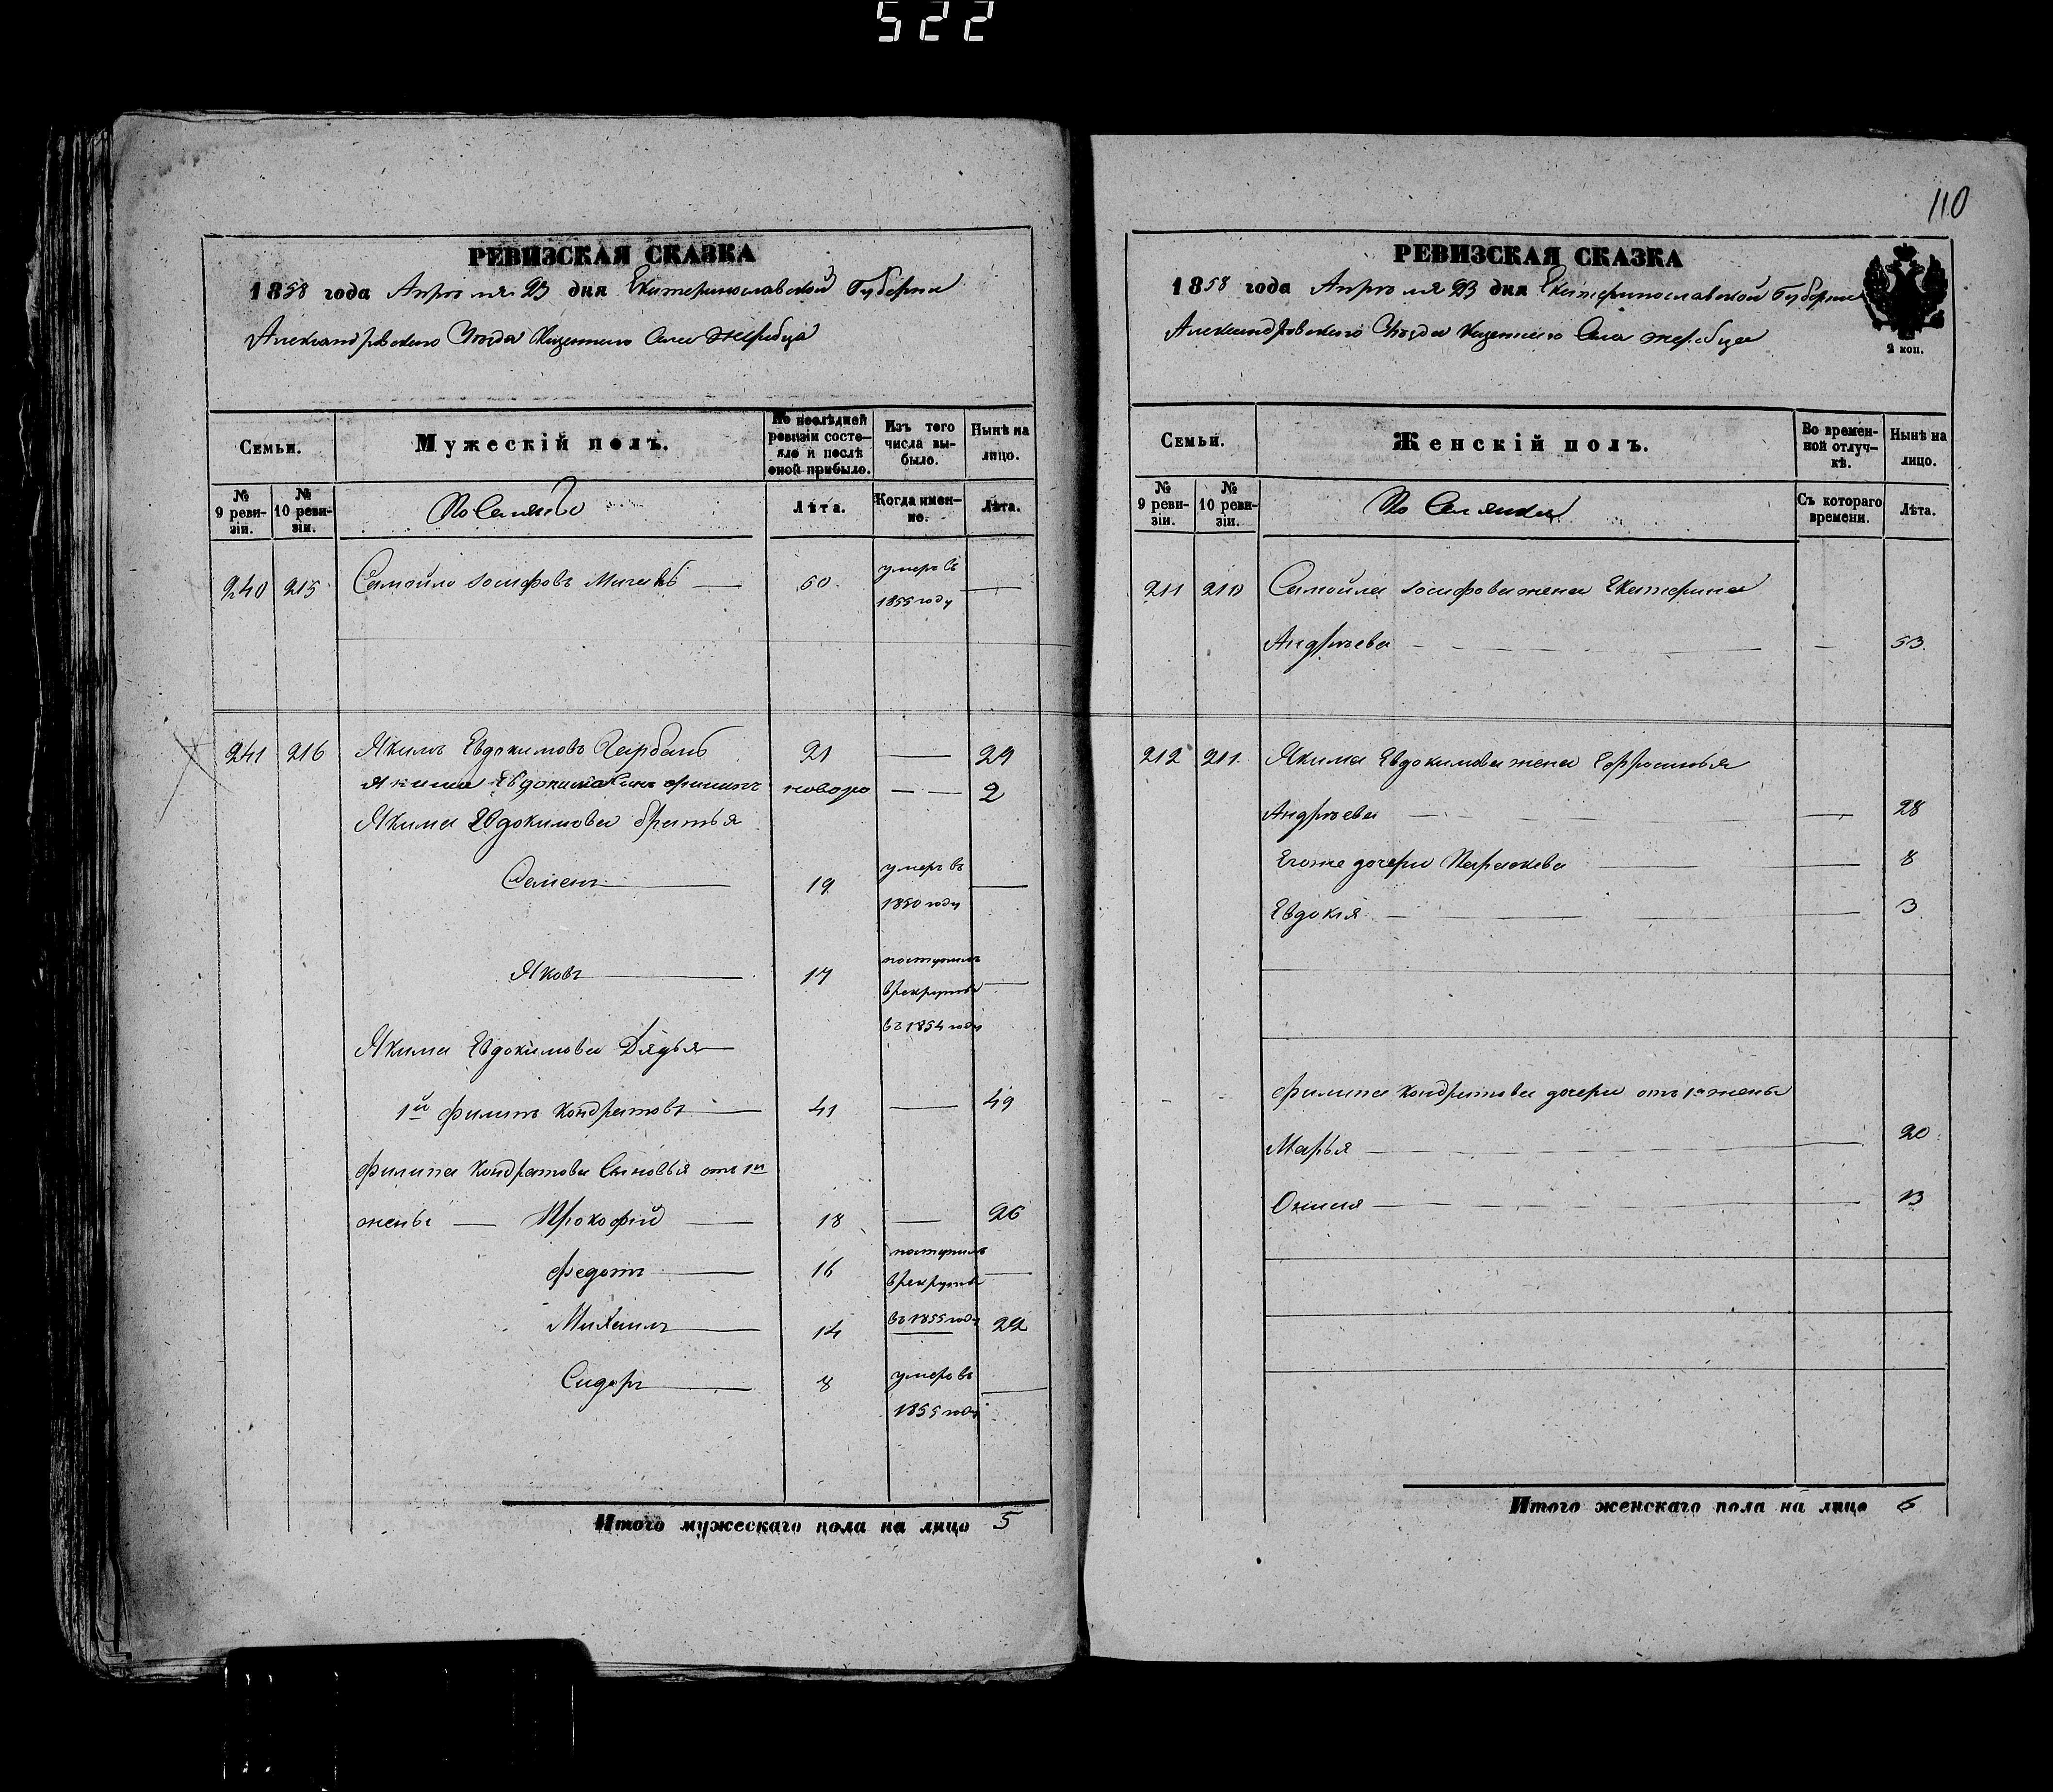 522
РЕВИЗСКАЯ СКАЗКА
1858 года Апреля 23 дня Екатеринославской Губерни
Александровского Уезда Казенного Села Жеребца
Семьи.
Мужескiй полъ.
По послѣдней ревизiи состояло и послѣ оной прибыло.
Изъ того числа выбыло.
Нынѣ на лицо.
№ 9 ревизiи.
№ 10 ревизiи.
Лѣта.
Когда именно.
Лѣта.
240 215 Самойло Iосифовъ 60 умеръ въ
1855 году
241 216 Якимъ Евдокимовъ Гарбань 21 — 29
Якима Евдокимова сынъ Филипъ новоро — 2
Якима Евдокимова братья
Семенъ 19 умеръ въ
1850 году
Яковъ 17 поступилъ
в рекруты
въ 1854 году
Якима Евдокимова Дядья
1й Филипъ Кондратовъ 41 — 49
Филипа Кондратова Сыновья отъ 1й
жены — Прокофiй 18 — 26
Федотъ 16 поступилъ
в рекруты
въ 1855 году
Михаилъ 14 — 22
Сидоръ 8 умеръ въ
1855 году
Итого мужескаго пола на лицо 5
110
РЕВИЗСКАЯ СКАЗКА
1858 года Апреля 23 дня Екатеринославской Губернии
Александровского Уезда Казенного Села Жеребца
2 коп.
Семьи.
Женскiй полъ.
Во временной отлучкѣ.
Нынѣ на лицо.
№ 9 ревизiи.
№ 10 ревизiи.
Поселянки
Съ котораго времени.
Лѣта.
211 210 Самойла Iосифова жена Екатерина
Андреева — 53
212 211 Якима Евдокимова жена Ефросинья
Андреева — 28
Егоже дочери Параскева — 8
Евдокiя — 3
Филипа Кондратова дочери отъ 1й жены
Марья — 20
13
Итого женскаго пола на лицо 6